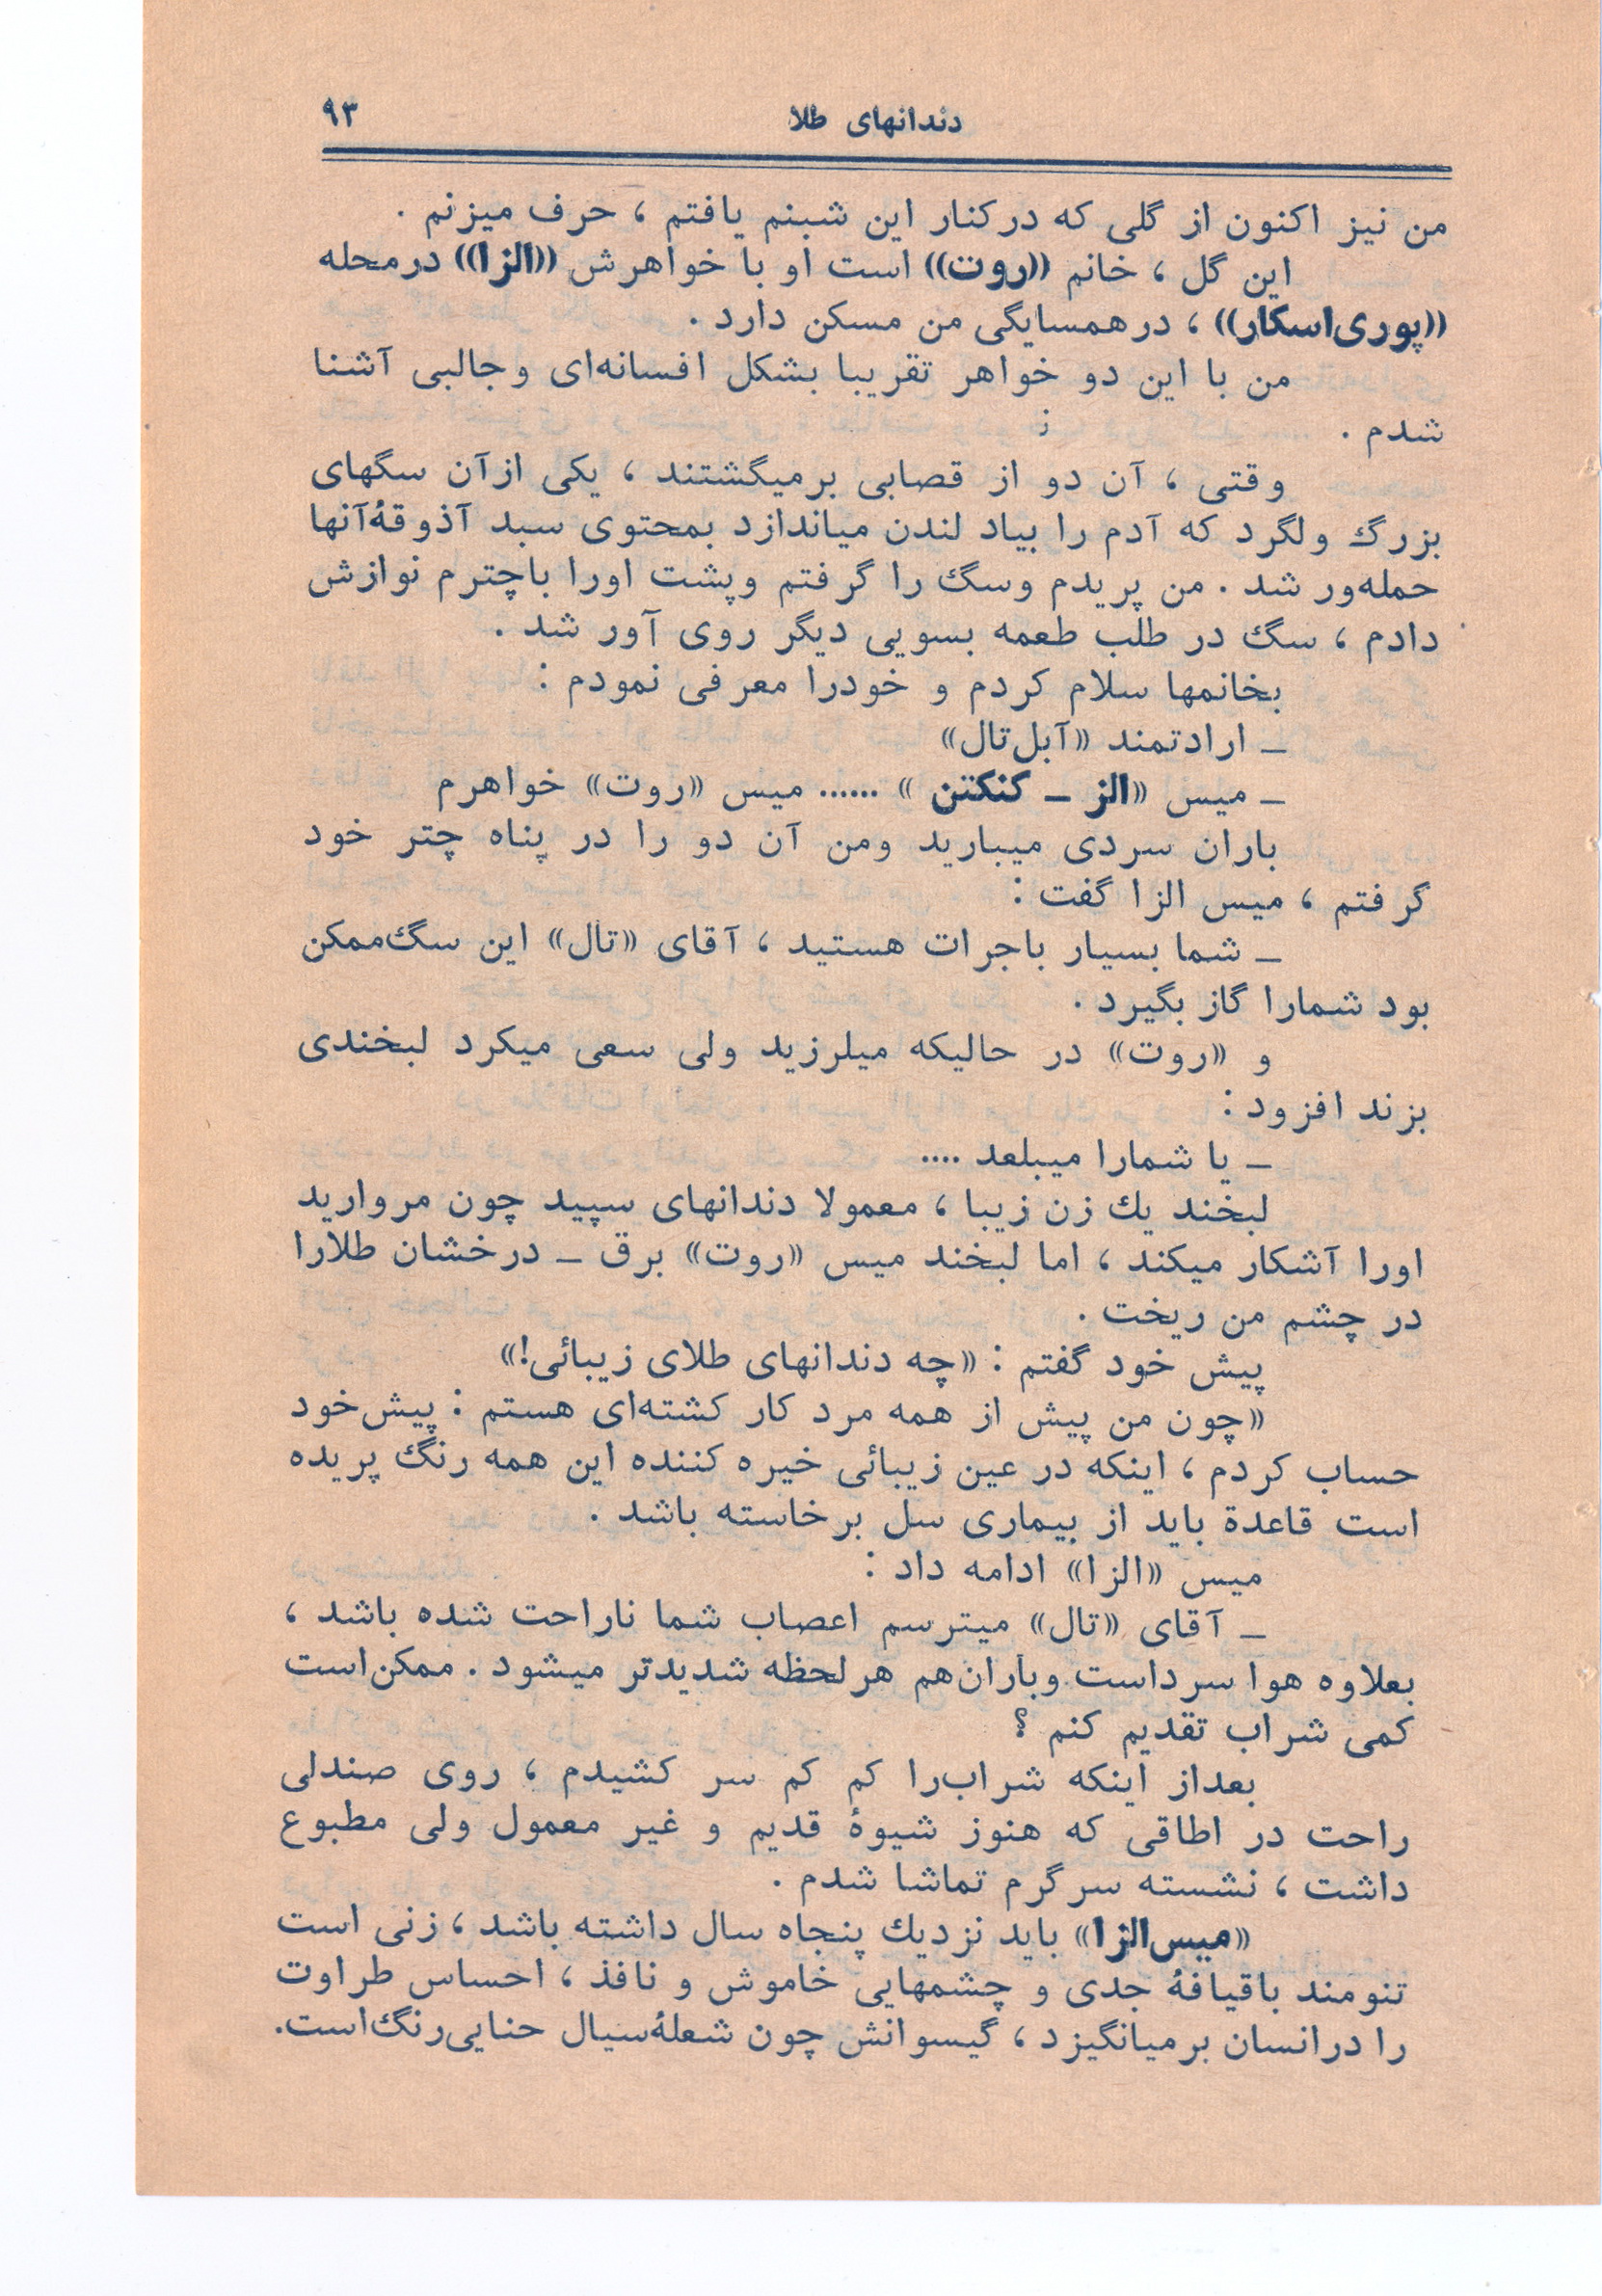 دندانهای طلا ۹۳
من نیز اکنون از گلی که درکنار این شبنم یافتم ، حرف میزنم .
این گل ، خانم ((روت)) است او با خواهرش ((الزا)) درمحله
((پوری‌اسکار)) ، درهمسایگی من مسکن دارد .
من با این دو خواهر تقریبا بشکل افسانه‌ای وجالبی آشنا
شدم .
وقتی ، آن دو از قصابی برمیگشتند ، یکی ازآن سگهای
بزرگ ولگرد که آدم را بیاد لندن میاندازد بمحتوی سبد آذوقهٔ‌آنها
حمله‌ور شد . من پریدم وسگ را گرفتم وپشت اورا باچترم نوازش
دادم ، سگ در طلب طعمه بسویی دیگر روی آور شد .
بخانمها سلام کردم و خودرا معرفی نمودم :
ـ ارادتمند «آبل‌تال»
ـ میس «الز ـ کنکتن » ...... میس «روت» خواهرم
باران سردی میبارید ومن آن دو را در پناه چتر خود
گرفتم ، میس الزا گفت :
ـ شما بسیار باجرات هستید ، آقای «تال» این سگ‌ممکن
بود شمارا گاز بگیرد .
و «روت» در حالیکه میلرزید ولی سعی میکرد لبخندی
بزند افزود :
ـ یا شمارا میبلعد ....
لبخند یك زن زیبا ، معمولا دندانهای سپید چون مروارید
اورا آشکار میکند ، اما لبخند میس «روت» برق ـ درخشان طلارا
در چشم من ریخت .
پیش خود گفتم : «چه دندانهای طلای زیبائی!»
«چون من پیش از همه مرد کار کشته‌ای هستم : پیش‌خود
حساب کردم ، اینکه در عین زیبائی خیره کننده این همه رنگ پریده
است قاعدة باید از بیماری سل برخاسته باشد .
میس «الزا» ادامه داد :
ـ آقای «تال» میترسم اعصاب شما ناراحت شده باشد ،
بعلاوه هوا سرداست وباران‌هم هرلحظه شدیدتر میشود . ممکن‌است
کمی شراب تقدیم کنم ؟
بعداز اینکه شراب‌را کم کم سر کشیدم ، روی صندلی
راحت در اطاقی که هنوز شیوهٔ قدیم و غیر معمول ولی مطبوع
داشت ، نشسته سرگرم تماشا شدم .
«میس‌الزا» باید نزدیك پنجاه سال داشته باشد ، زنی است
تنومند باقیافهٔ جدی و چشمهایی خاموش و نافذ ، احساس طراوت
را درانسان برمیانگیزد ، گیسوانش چون شعلهٔ‌سیال حنایی‌رنگ‌است.